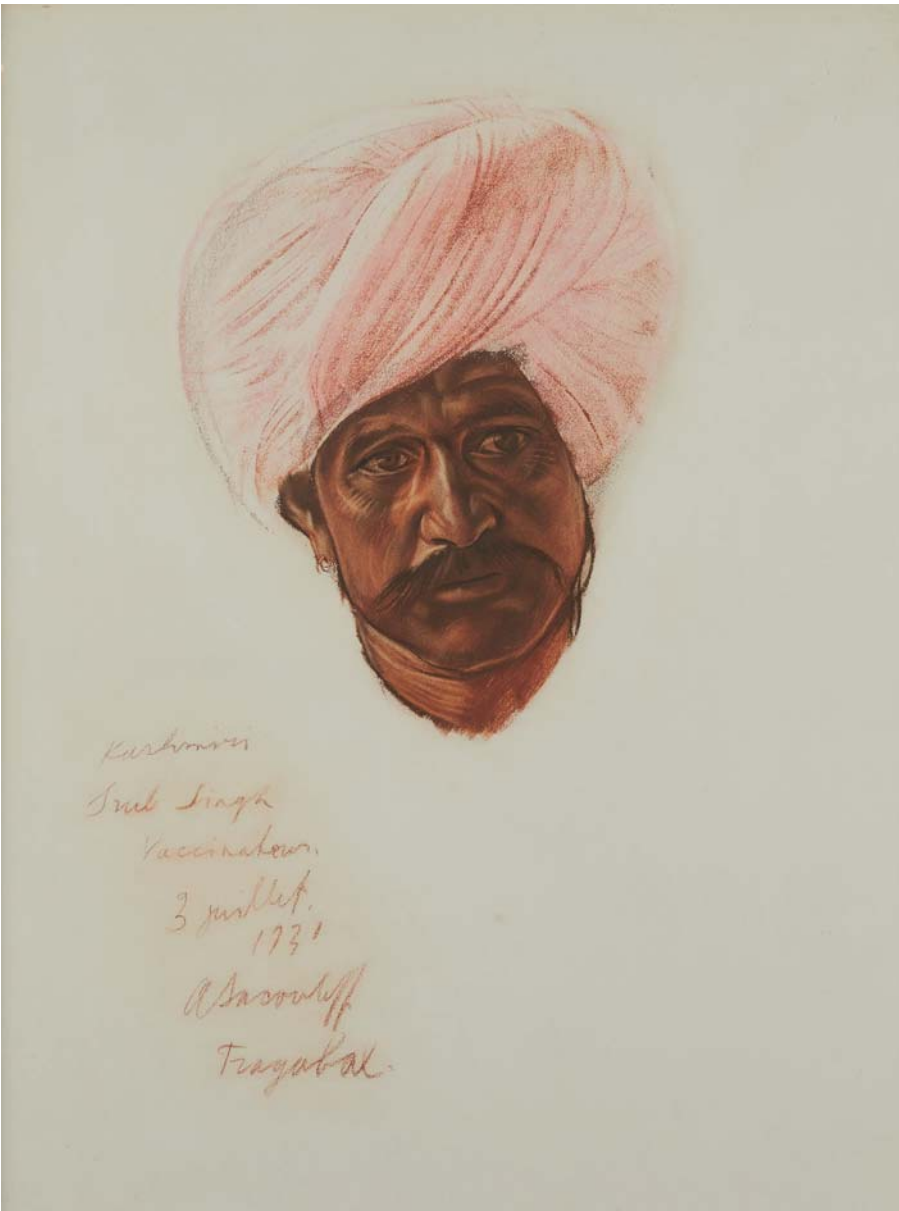 Kashmir
Singh
Vaccinateur.
3 juillet.
1931
A Iacovleff
Tragabal.